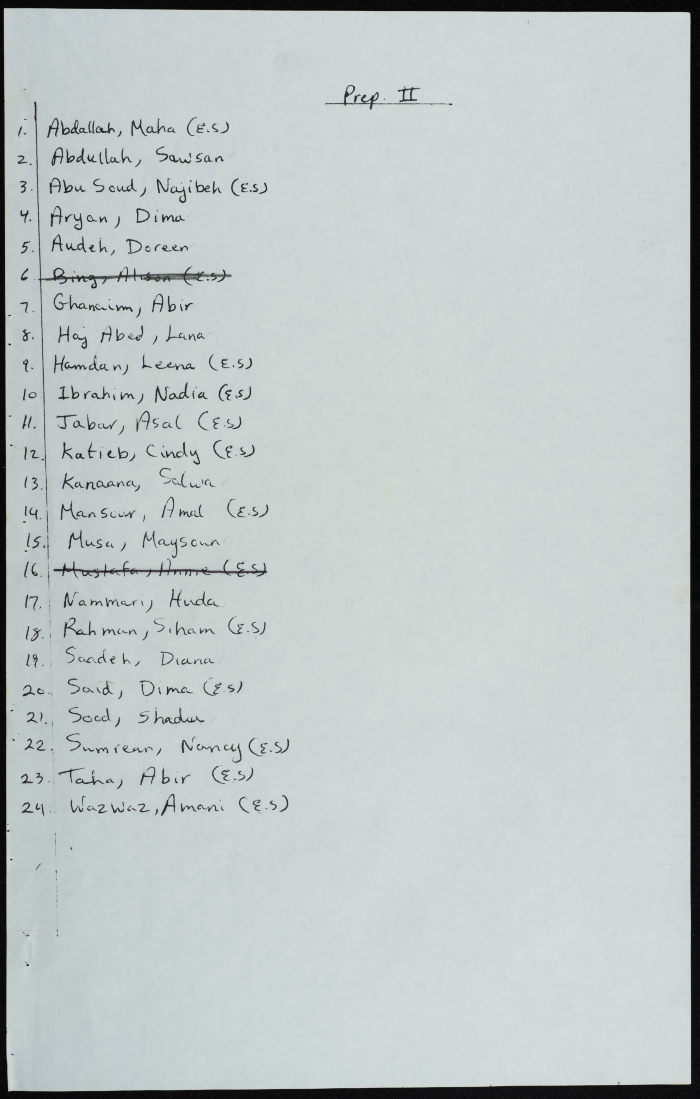 Prep. II
1. Abdallah, Maha (E.S)
2. Abdullah, Sawsan
3. Abu Soud, Najibeh (E.S)
4. Aryan, Dima
5. Audeh, Doreen
6 Bing, Alison (E.S)
7. Ghanaim, Abir
8. Haj Abed, Lana
9. Hamdan, Leena (E.S)
10 Ibrahim, Nadia (E.S)
11. Jabar, Asal (E.S)
12. Katieb, Cindy (E.S)
13. Kanaana, Salwa
14. Mansour, Amal (E.S)
15. Musa, Maysoun
16. Mustafa, Annie (E.S)
17. Nammari, Huda
18. Rahman, Siham (E.S)
19. Saadeh, Diana
20. Said, Dima (E.S)
21. Soed, Shadua
22. Sumrean, Nancy (E.S)
23. Taha, Abir (E.S)
24. Wazwaz, Amani (E.S)